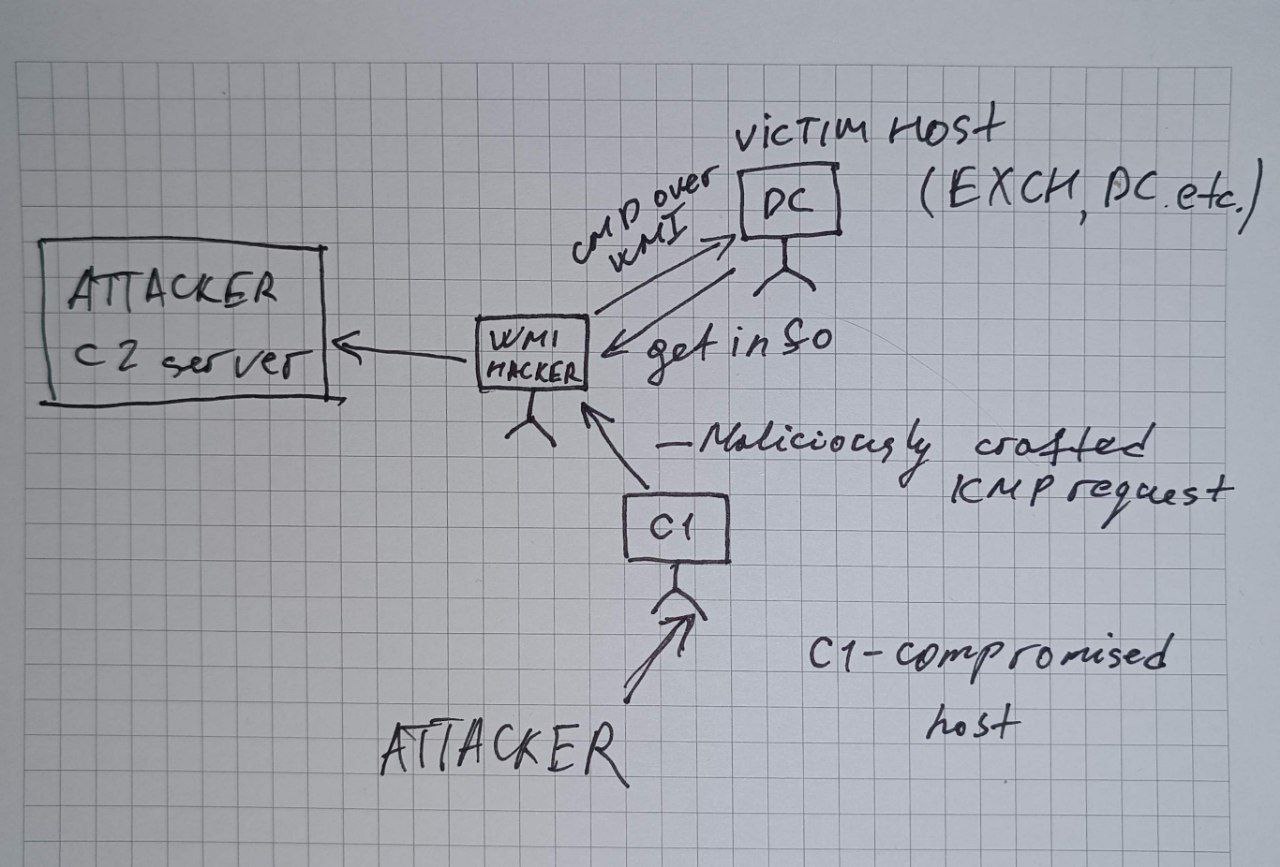 VICTIM HOST
(EXCH, DC. etc.)
CMD over
WMI
DC
ATTACKER
C2 server
WMI
HACKER
get info
– Maliciously crafted
ICMP request
C1
C1 - compromised
host
ATTACKER